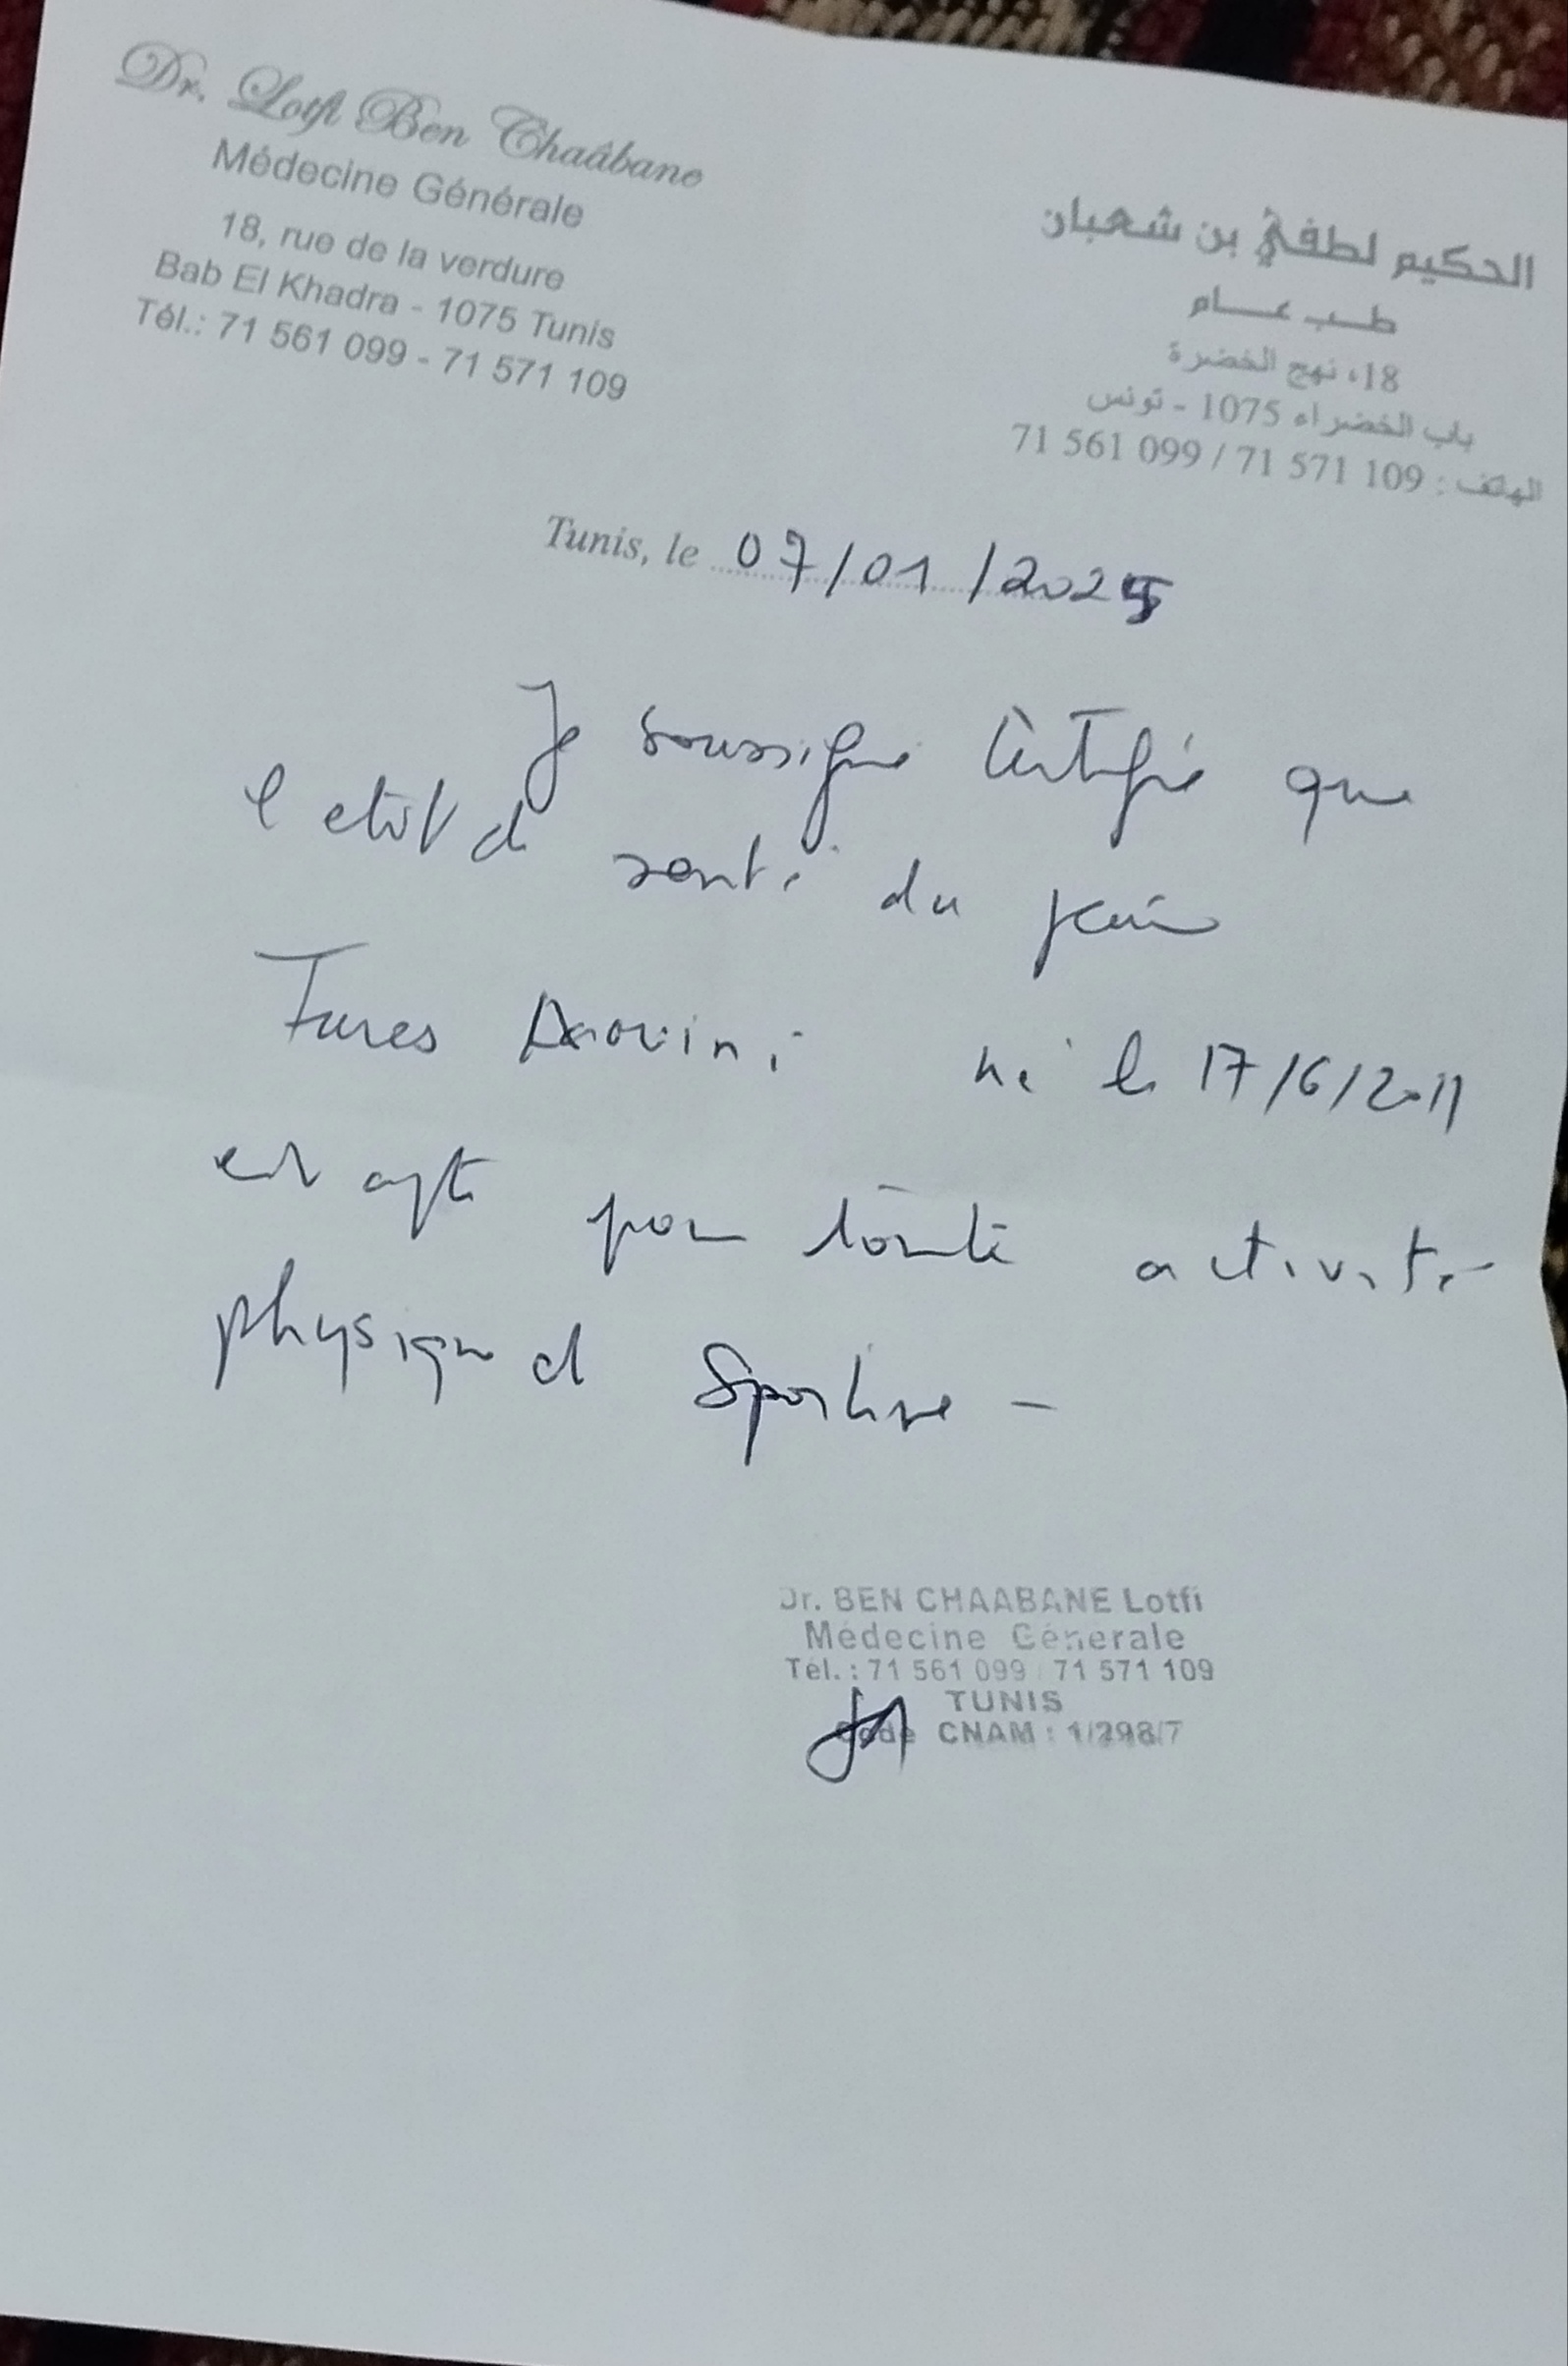 Dr. Lotfi Ben Chaâbane
Médecine Générale
18, rue de la verdure
Bab El Khadra - 1075 Tunis
Tél.: 71 561 099 - 71 571 109
الحكيم لطفي بن شعبان
طب عام
18، نهج الخضرة
باب الخضراء 1075 - تونس
الهاتف : 71 571 109 / 71 561 099
Tunis, le 07/01/2025
Je soussigné certifie que
l'etat de santé du jeune
Fares né le 17/6/2011
est apte pour toute activité
physique et Sportive -
Dr. BEN CHAABANE Lotfi
Médecine Génerale
Tél. : 71 561 099 71 571 109
TUNIS
Code CNAM : 1/298/7